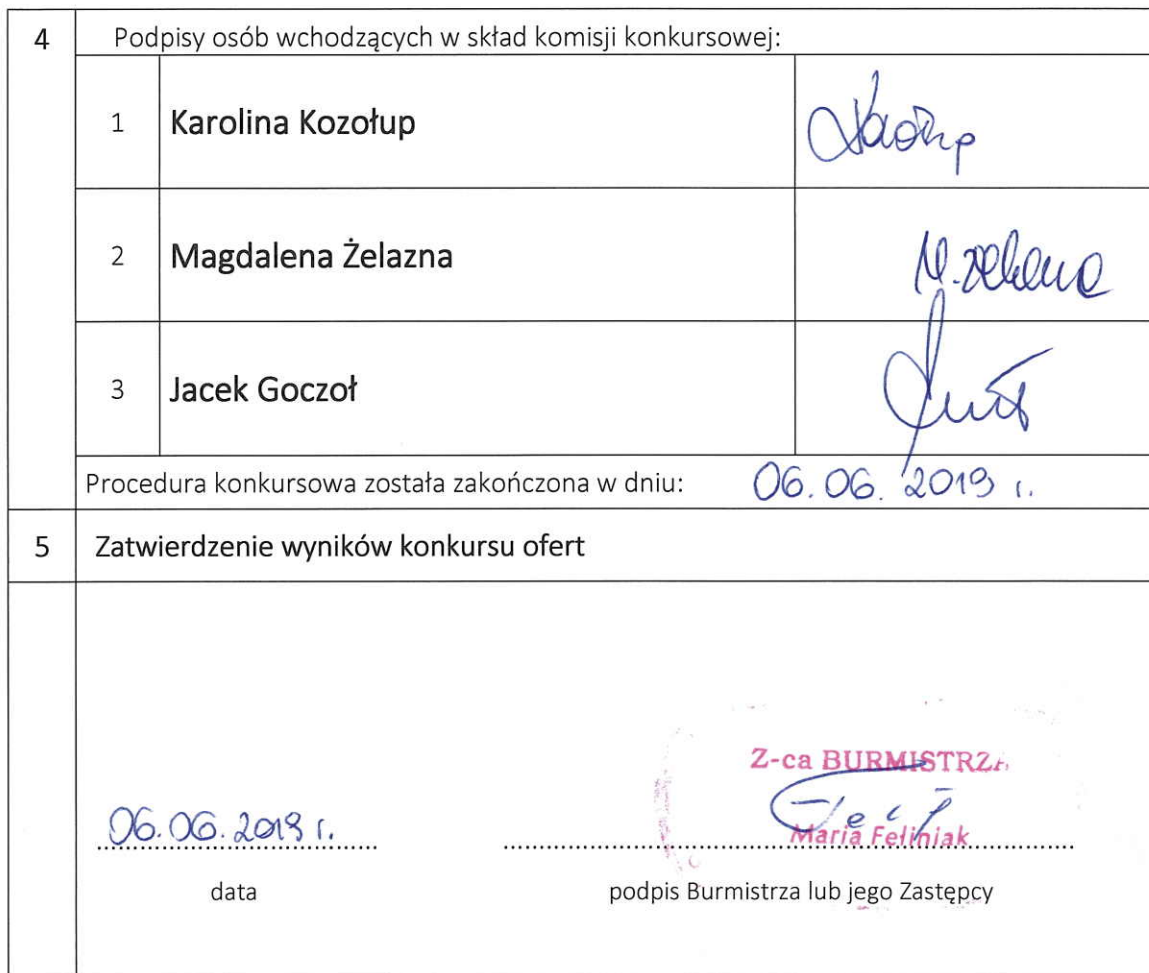 4 Podpisy osób wchodzących w skład komisji konkursowej:
1 Karolina Kozołup
2 Magdalena Żelazna
3 Jacek Goczoł
Procedura konkursowa została zakończona w dniu: 06.06.2019 r.
5 Zatwierdzenie wyników konkursu ofert
Z-ca BURMISTRZA
Maria Feliniak
06.06.2019 r.
data podpis Burmistrza lub jego Zastępcy